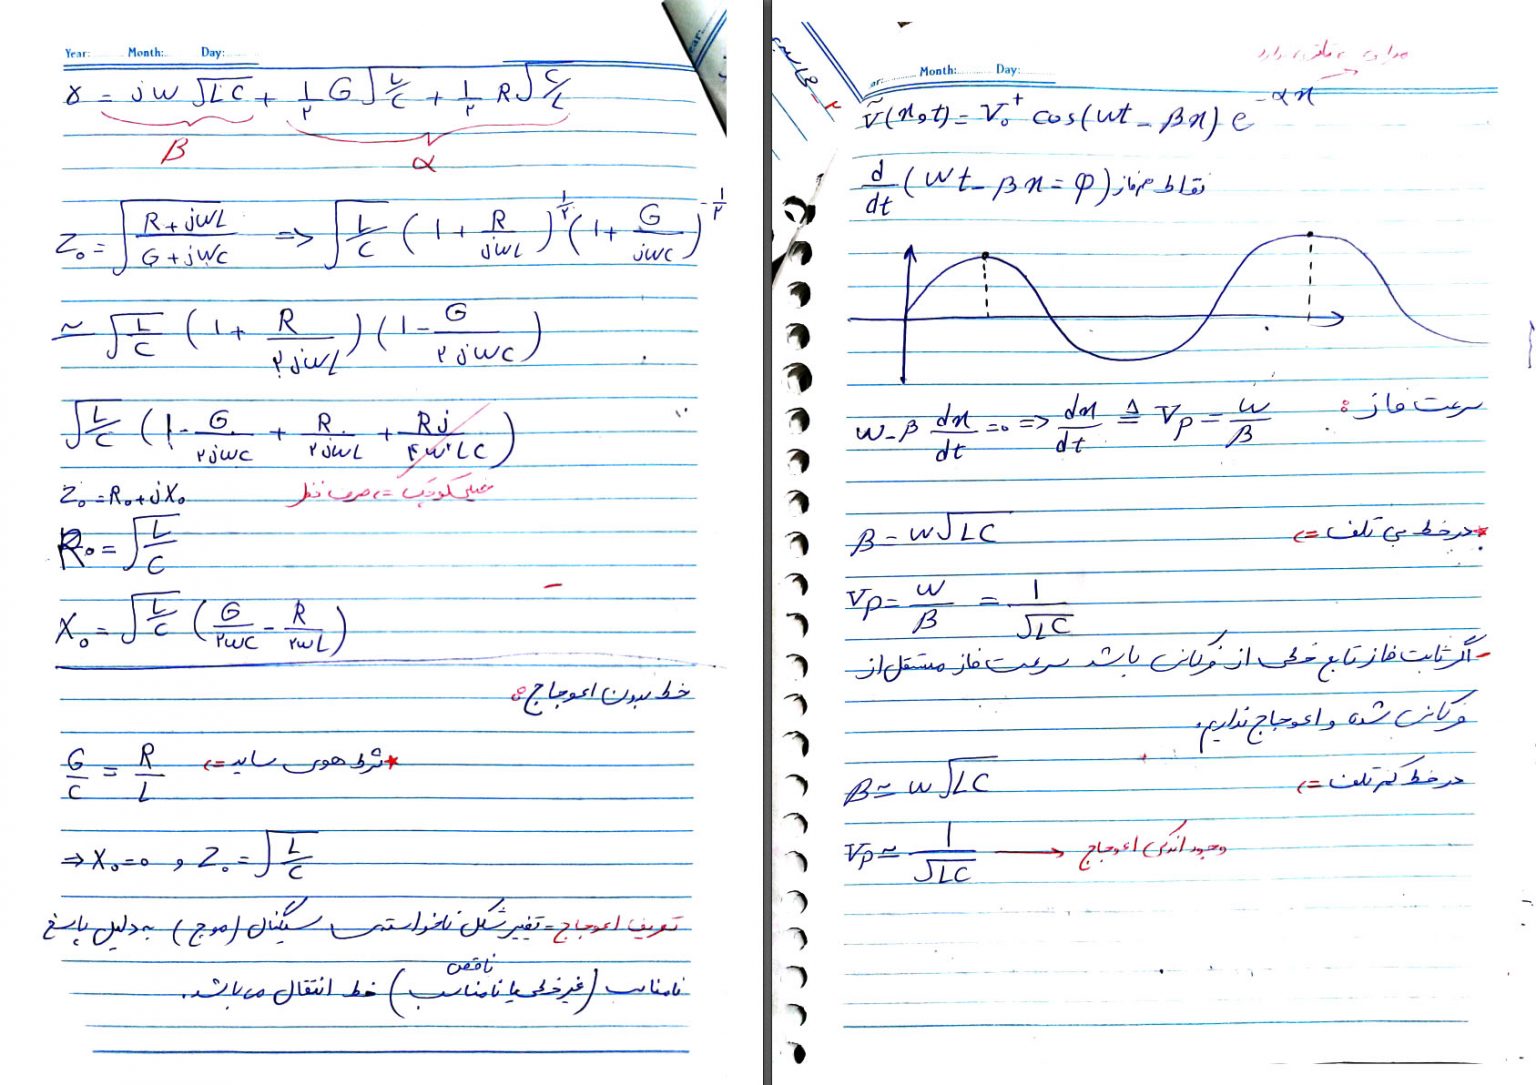 Year: Month: Day:
γ = jω √LC + ۱/۲ G √L/C + ۱/۲ R √C/L
β α
Z₀ = √(R + jωL / G + jωC) => √L/C (۱ + R/jωL)^۱/۲ (۱ + G/jωC)^-۱/۲
≃ √L/C (۱ + R/۲jωL) (۱ - G/۲jωC)
√L/C (۱ - G/۲jωC + R/۲jωL + Rj/۴ω²LC)
Z₀ = R₀ + jX₀ خیلی کوچک => صرف نظر
R₀ = √L/C
X₀ = √L/C (G/۲ωC - R/۲ωL)
خط بدون اعوجاج:
* شرط هوی ساید => G/C = R/L
=> X₀ = ۰ , Z₀ = √L/C
تعریف اعوجاج = تغییر شکل ناخواسته‌ی سیگنال (موج) به دلیل پاسخ
ناقص
نامناسب (غیرخطی یا نامناسب) خط انتقال می‌باشد.
Month: Day:
ṽ(x,t) = V₀⁺ cos(ωt - βx) e^-αx
d/dt (ωt - βx = φ) نقاط هم فاز
سرعت فاز: ω - β dx/dt = ۰ => dx/dt ≜ Vp = ω/β
* در خط بی تلف => β = ω√LC
Vp = ω/β = 1/√LC
- اگر ثابت فاز تابع خطی از فرکانس باشد سرعت فاز مستقل از
فرکانس شده و اعوجاج نداریم.
در خط کم تلف => β ≃ ω√LC
Vp ≃ 1/√LC → وجود اندکی اعوجاج